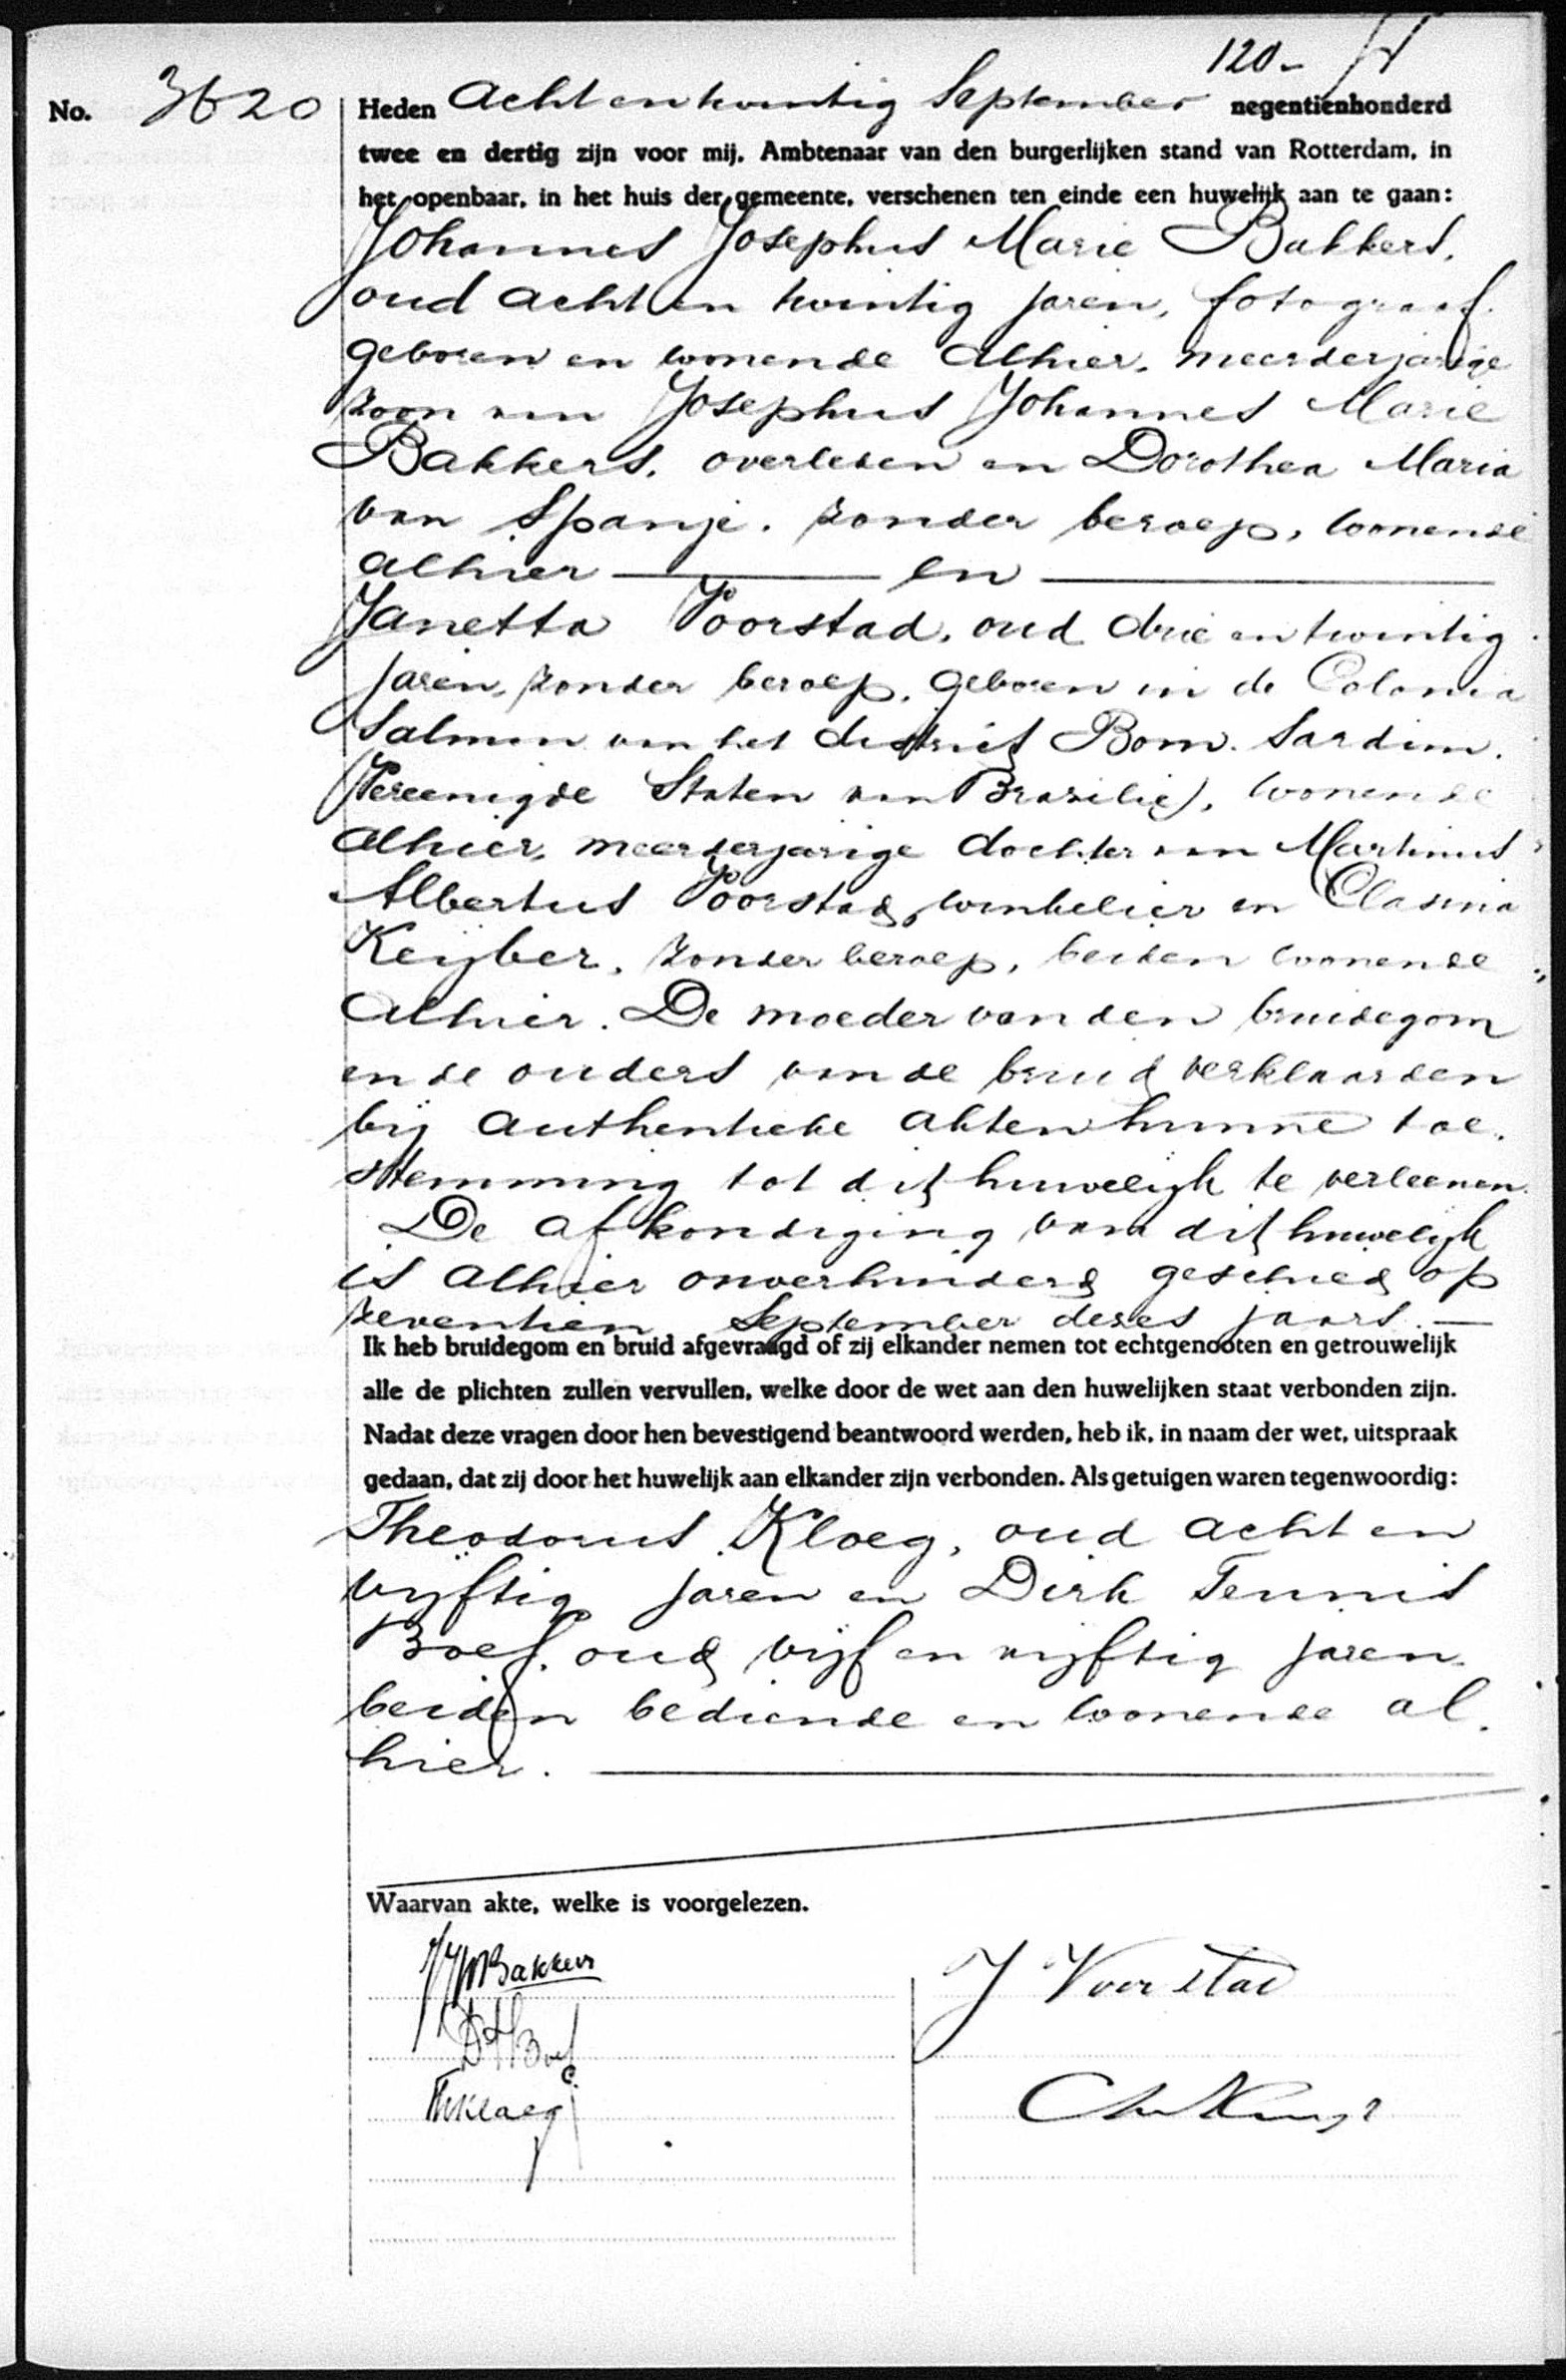 120-
No. 3620
Heden acht en twintig September negentienhonderd
twee en dertig zijn voor mij, Ambtenaar van den burgerlijken stand van Rotterdam, in
het openbaar, in het huis der gemeente, verschenen ten einde een huwelijk aan te gaan:
Johannes Josephus Marie Bakkers,
oud acht en twintig jaren, fotograaf.
geboren en wonende alhier, meerderjarige
zoon van Josephus Johannes Marie
Bakkers, overleden en Dorothea Maria
van Spanje, zonder beroep, wonende
alhier — en —
Janetta Voorstad, oud drie en twintig
jaren, zonder beroep, geboren in de Colonia
van het district Bom. Jardim.
(Vereenigde Staten van Brazilië), wonende
alhier, meerderjarige dochter van Martinus
Albertus Voorstad, winkelier en Clasina
Keijber, zonder beroep, beiden wonende
alhier. De moeder van den bruidegom
en de ouders van de bruid verklaarden
bij authentieke akten hunne toe-
stemming tot dit huwelijk te verleenen.
De afkondiging van dit huwelijk
is alhier onverhinderd geschied op
zeventien September dezes jaars. —
Ik heb bruidegom en bruid afgevraagd of zij elkander nemen tot echtgenooten en getrouwelijk
alle de plichten zullen vervullen, welke door de wet aan den huwelijken staat verbonden zijn.
Nadat deze vragen door hen bevestigend beantwoord werden, heb ik, in naam der wet, uitspraak
gedaan, dat zij door het huwelijk aan elkander zijn verbonden. Als getuigen waren tegenwoordig:
Theodorus Kloeg, oud acht en
vijftig jaren en Dirk Teunis
Boef, oud vijf en vijftig jaren
beiden bediende en wonende al-
hier. —
Waarvan akte, welke is voorgelezen.
JJM Bakkers
J Voorstad
DTBoef
ThKloeg